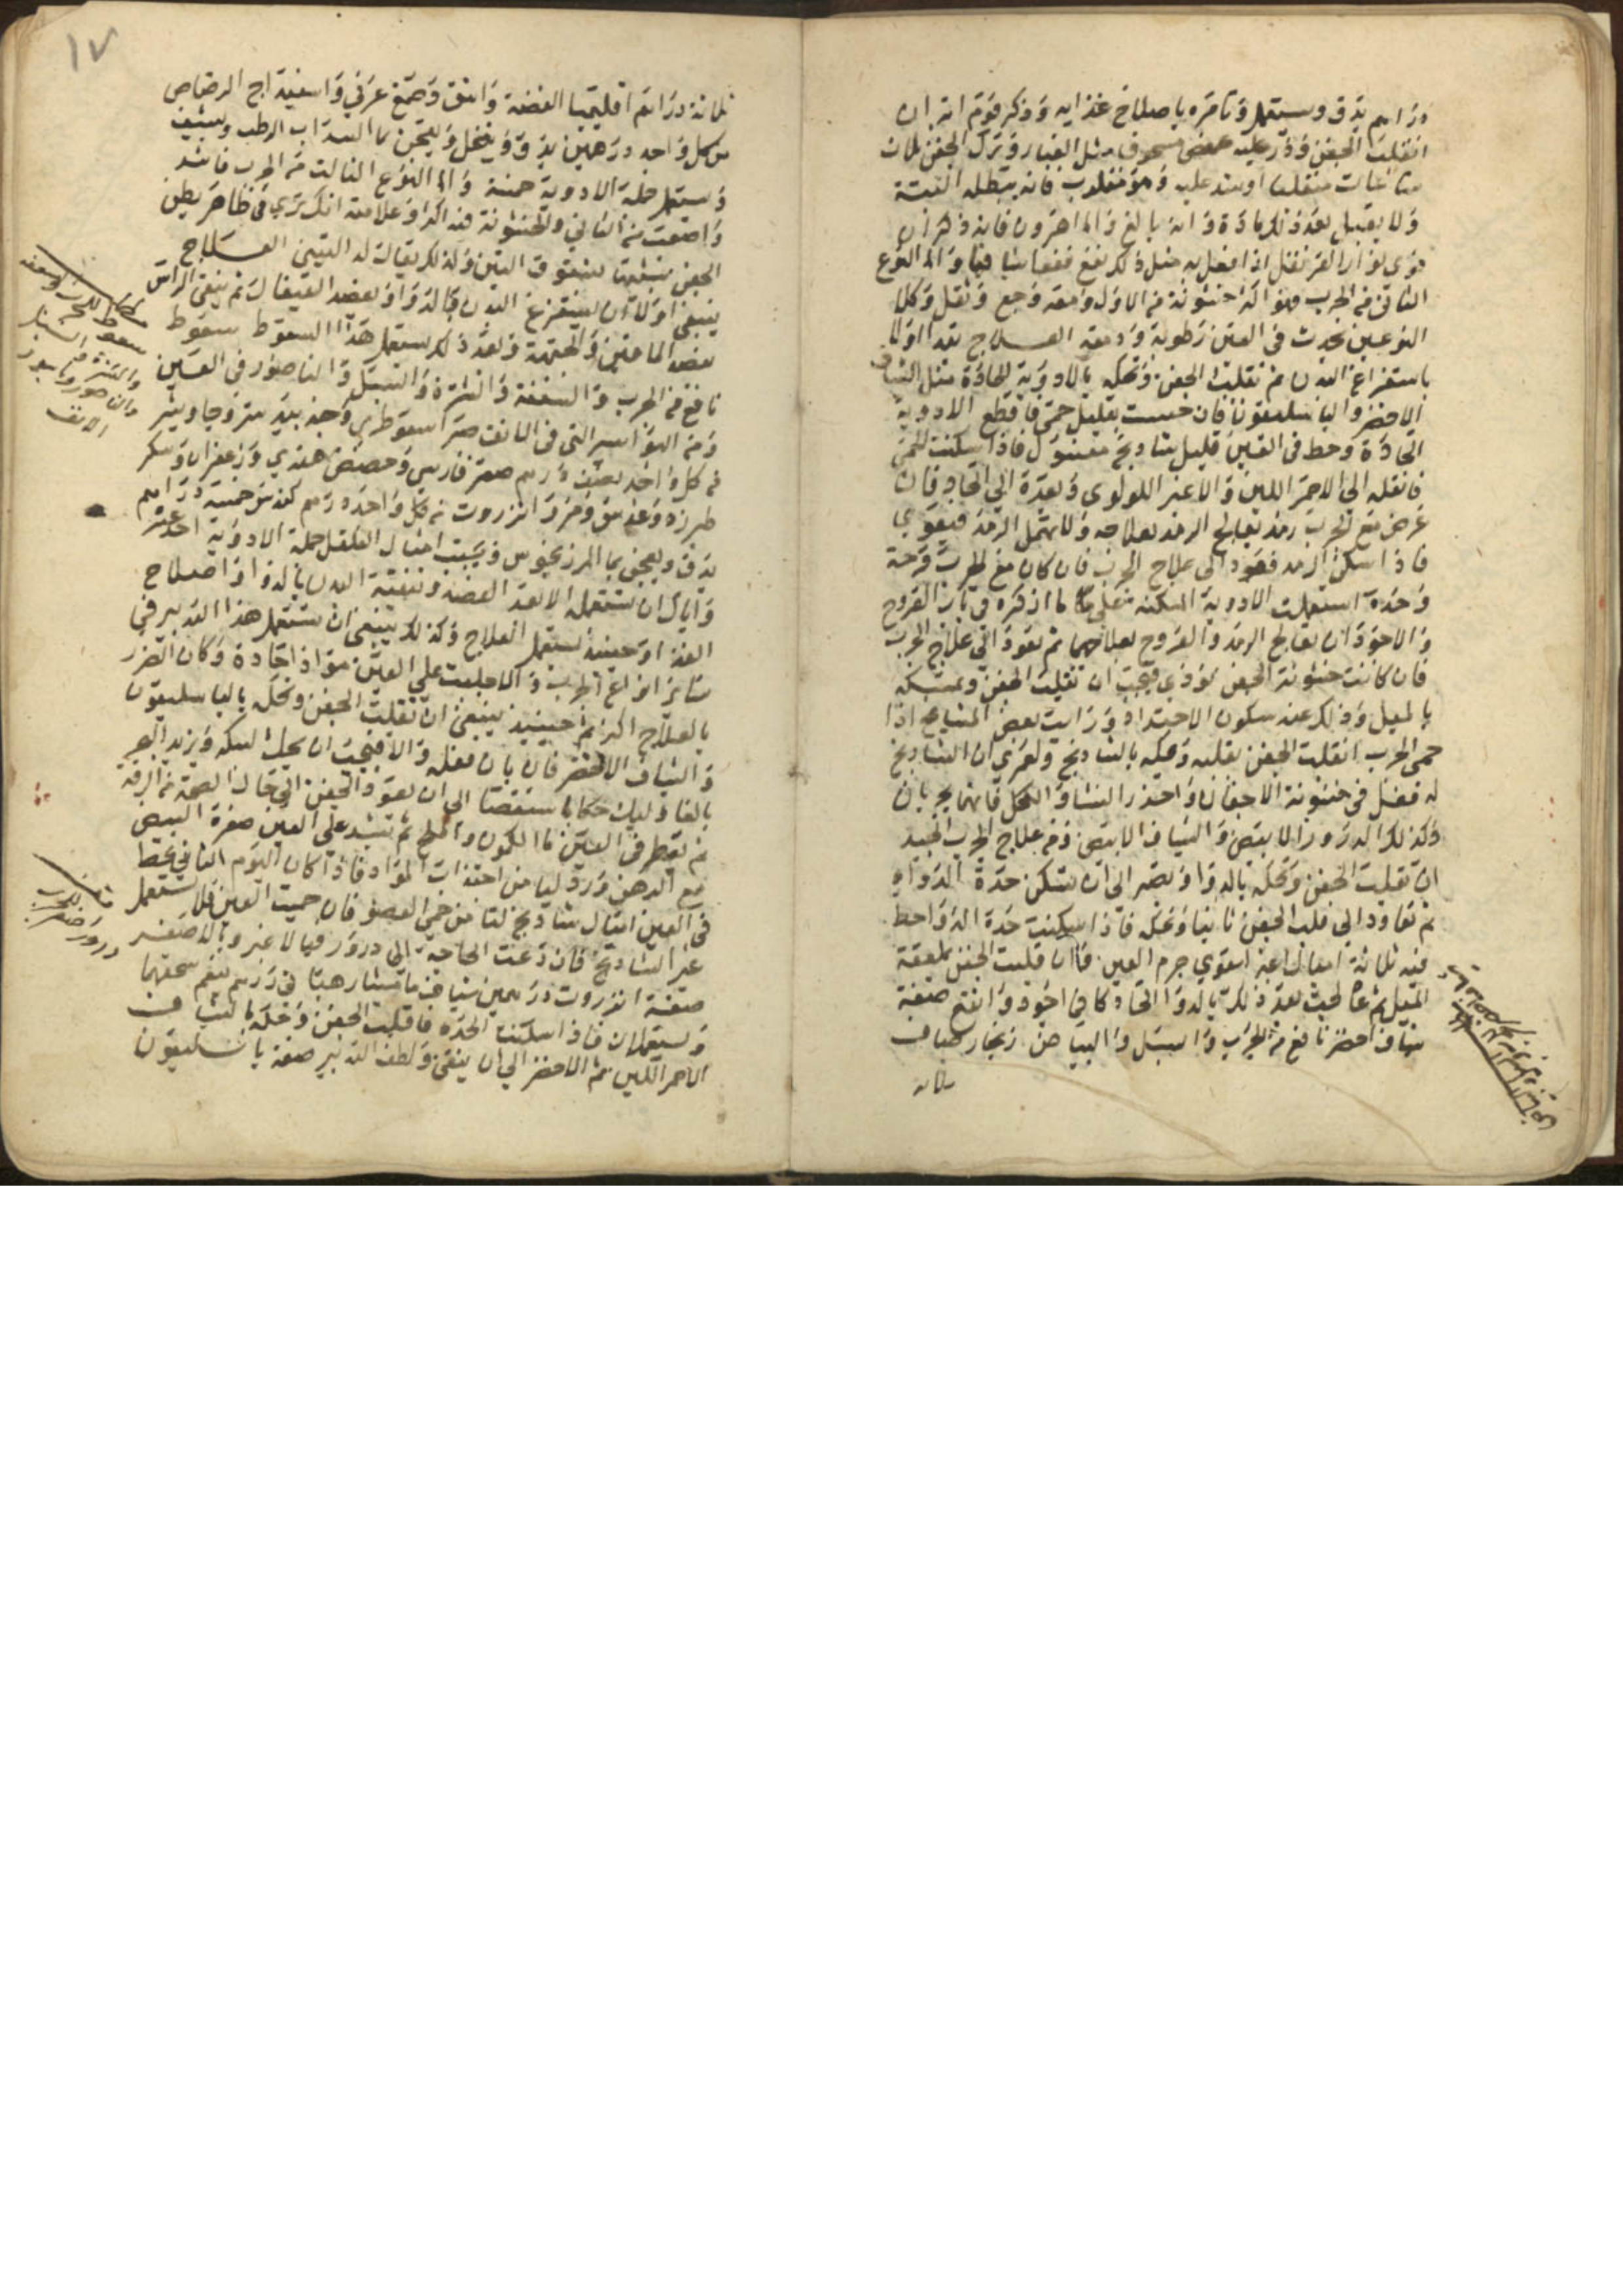 دراهم يدق ويستعمل وتامره باصلاح غذايه وذكر قوم انه ان
انقلب الجفن وذر عليه عفص مسحوق مثل الغبار وترك الجفن ثلاث
ساعات منقلبا او يشد عليه وهو مقلوب فانه يبطله البتة
ولا يقبل بعد ذلك مادة وانه بالغ
الثاني من الجرب فهو اكثر خشونة من الاول ومعه وجع وثقل وكلا
النوعين يحدث في العين رطوبة ودمعة العلاج تبدا اولا
باستفراغ البدن ثم تقلب الجفن وتحكه بالادوية الحادة مثل الشياف
الاخضر والباسليقون فان حسست بقليل حمى فاقطع الادوية
الحادة وحط في العين قليل شادنج مغسول فاذا سكنت الحمى
فانقله الى الاحمر اللين والاغبر اللولوي وبعده الى الحاد فان
عرض مع الجرب رمد يعالج الرمد بعلاجه ولا تهمل الرمد فيقوي
فاذا سكن الرمد فعود الى علاج الجرب فان كان مع الجرب قرحة
وحدة استعملت الادوية المسكنه على ما اذكره في باب القروح
والاجود ان تعالج الرمد والقروح بعلاجهما ثم تعود الى علاج الجرب
فان كانت خشونة الجفن توذي فيجب ان تقلب الجفن وتمسكه
بالميل وذلك عند سكون الاحتداد ورايت بعض المشايخ اذا
حمى الجرب انقلب الجفن يقلبه ويحكه بالشادنج ولعمري ان الشادنج
له فضل في خشونة الاجفان واحذر النشا والكحل فانهما يجربان
وكذلك الدرور الابيض والشياف الابيض ومن علاج الجرب الجيد
ان تقلب الجفن وتحكه بالدوا وتصبر الى ان تسكن حدة الدواء
ثم تعاود الى قلب الجفن ثانيا وتحكه فاذا سكنت حدة الدوا حط
فيه ثلاثة اميال اغبر ليقوي جرم العين فاما قلبت الجفن بملعقة
الميل ثم عالجت بعد ذلك بالدوا الحاد كان اجود وانفع صفة
شياف اخضر نافع من الجرب والسبل والبياض زنجار صاف
ثلاثة
١٧
ثلاثة دراهم اقليميا الفضة واشق وصمغ عربي واسفيداج الرصاص
من كل واحد درهمين يدق وينخل ويعجن بما السداب الرطب ويشيف
ويستعمل جملة الادوية خمسة واما النوع الثالث من الجرب فاشد
واصعب من الثاني والخشونة فيه اكثر وعلامته انك ترى في ظاهر بطن
الجفن شبيها بشقوق التين ولذلك يقال له التيني العلاج
ينبغي اولا ان يستفرغ البدن بالدوا وبفصد القيفال ثم ينقى الراس
بفصد الماقين والجبهة وبعد ذلك يستعمل هذا السعوط سعوط
نافع من الجرب والسعفة والنثرة والسبل والناصور في العين
ومن البواسير التي في الانف صبر اسقوطري وجند بيدستر وجاوشير
من كل واحد نصف درهم صعتر فارسي وحضض هندي وزعفران وسكر
طبرزد وعدس مر وانزروت من كل واحد درهم كندس خمسة دراهم
يدق ويعجن بما المرزنجوش ويحبب امثال الفلفل جملة الادوية احد عشر
واياك ان تستعمله الا بعد الفصد وتنقية البدن بالدوا واصلاح
الغذا وحينئذ تستعمل العلاج وكذلك ينبغي ان تستعمل هذا التدبير في
ساير انواع الجرب والا جلبت على العين مواد حادة وكان الضرر
بالعلاج اكثر ثم حينيذ ينبغي ان تقلب الجفن وتحكه بالباسليقون
والشياف الاخضر فان بان فعله والا فيجب ان يحك بالسكر وزبد البحر
بالغا وليك حكا باستقصا الى ان يعود الجفن الى حال الصحة من الرقة
ثم يقطر في العين ما الكمون والملح ثم تشد على العين صفرة البيض
مع الدهن ورد ليامن اجتذاب المواد فاذا كان اليوم الثاني يحط
في العين اميال شادنج لتامن حمي العضو فان حميت العين فلا تستعمل
غير الشادنج فان دعت الحاجة الى درور فبالاغبر وبالاصفر
صفة انزروت درهمين شياف ماميثا هبا في درهم ينعم سحقهما
ويستعملان فاذا سكنت الحدة فاقلب الجفن وحكه بالشياف
الاحمر اللين ثم الاخضر الى ان ينقى ولطف التدبير صفة باسليقون
سعوط للجرب والسعفة
والنثرة والسبل
والناصور وبواسير
الانف
درور اصفر للجرب